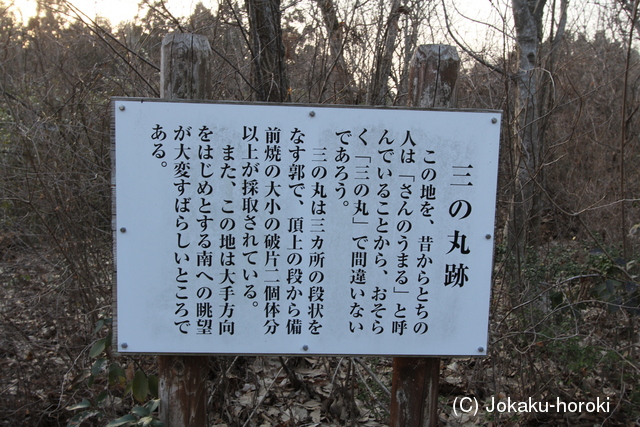 三の丸跡
この地を、昔からとちの
人は「さんのうまる」と呼
んでいることから、おそら
く「三の丸」で間違いない
であろう。
三の丸は三カ所の段状を
なす郭で、頂上の段から備
前焼の大小の破片二個体分
以上が採取されている。
また、この地は大手方向
をはじめとする南への眺望
が大変すばらしいところで
ある。
(C) Jokaku-horoki